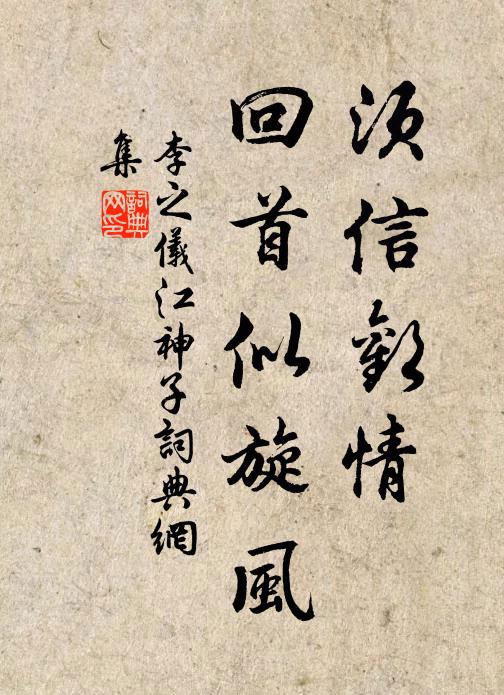 須信歡情
回首似旋風
李之儀江神子詞典網
集
詞典
网印